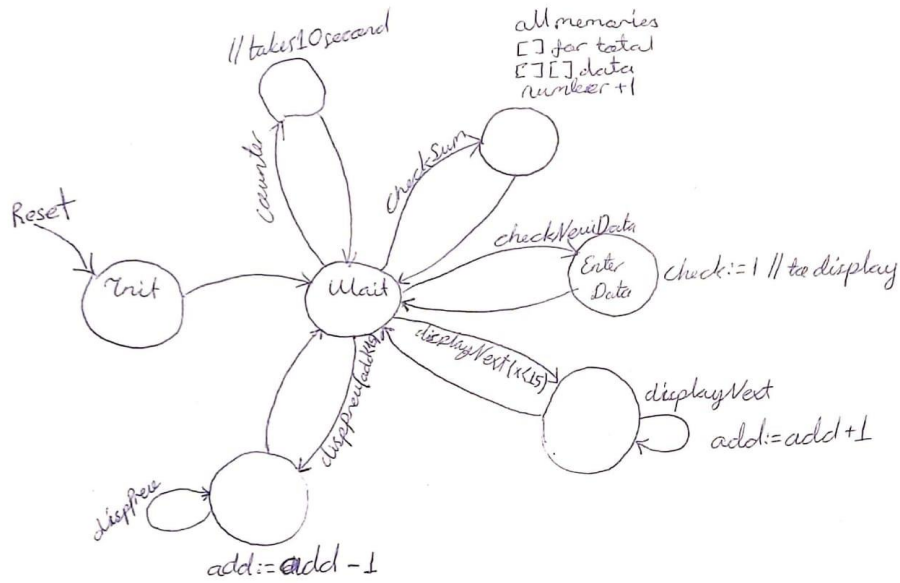 //takes10second
all memories
[ ] for total
[ ][ ] data
number +1
counter
checkSum
Reset
Init
Wait
checkNewData
Enter
Data
check:=1 // to display
displayNext(x<15)
displayNext
add:=add+1
dispPrev
add:=add-1